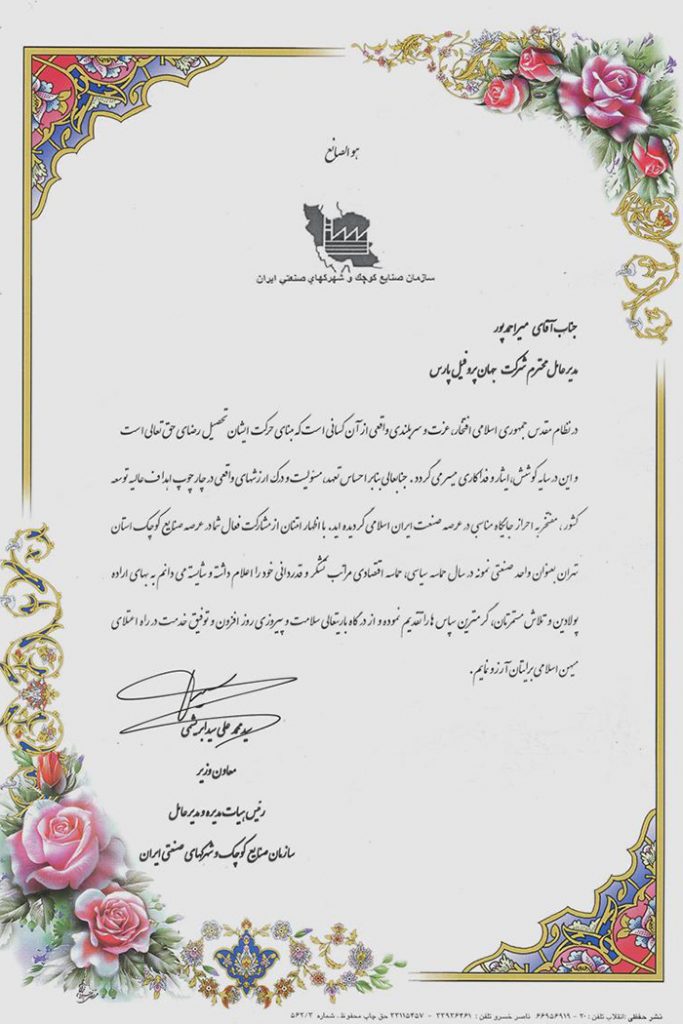 هوالصانع
سازمان صنایع کوچک و شهرکهای صنعتی ایران
جناب آقای میراحمدپور
مدیرعامل محترم شرکت جهان پروفیل پارس
در نظام مقدس جمهوری اسلامی افتخار، عزت و سربلندی واقعی از آن کسانی است که مبنای حرکت ایشان تحصیل رضای حق تعالی است
و این در سایه کوشش، ایثار و فداکاری میسر می گردد. جنابعالی بنابر احساس تعهد، مسئولیت و درک ارزشهای واقعی در چارچوب اهداف عالیه توسعه
کشور، مفتخر به احراز جایگاه مناسبی در عرصه صنعت ایران اسلامی گردیده اید. با اظهار امتنان از مشارکت فعال شما در عرصه صنایع کوچک استان
تهران بعنوان واحد صنعتی نمونه در سال حماسه سیاسی، حماسه اقتصادی مراتب تشکر و قدردانی خود را اعلام داشته و شایسته می دانم به بهای اراده
پولادین و تلاش مستمرتان، گرمترین سپاس ها را تقدیم نموده و از درگاه باریتعالی سلامت و پیروزی روز افزون و توفیق خدمت در راه اعتلای
میهن اسلامی برایتان آرزو نمایم.
سید محمد علی سید ابریشمی
معاون وزیر
رئیس هیات مدیره و مدیرعامل
سازمان صنایع کوچک و شهرکهای صنعتی ایران
نشر حفظی (انقلاب تلفن: ۲۰ - ۶۶۹۵۶۹۱۹ ناصر خسرو تلفن: ۳۳۹۳۶۴۶۱ - ۳۳۱۱۵۴۵۷ حق چاپ محفوظ. شماره ۵۶۲/۳